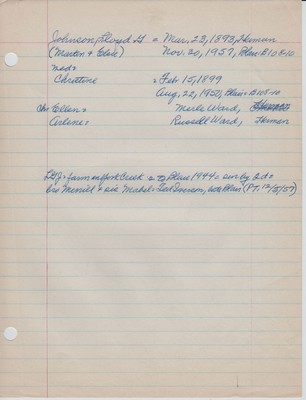 Johnson, Lloyd G = Mar. 23, 1893, Herman
(Martin & Elsie) Nov. 30, 1957, Blair: B10 E-10
md =
Christine = Feb 15, 1899
Aug. 22, 1950, Blair = B108-10
ch: Ellen = Merle Ward,
Arlene = Russell Ward, Herman
LGJ = farm on York Creek = to Blair 1944 = surv by 2 d =
bro Merrill + sis Mabel = Ted Jonson, both Blair (PT. 12/5/57)